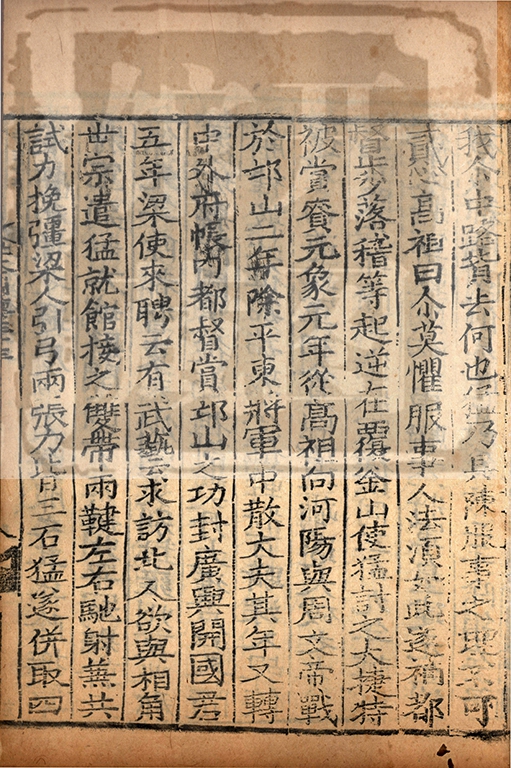 我今中路背去何也猛乃具陳服事之理不可
貳心高祖曰尒莫懼服事人法須如此遂補都
督步落稽等起逆在覆釜山使猛討之大捷特
被賞賚元象元年從高祖向河陽與周文帝戰
於邙山二年除平東將軍中散大夫其年又轉
中外府帳內都督賞邙山之功封廣興開國君
五年梁使來聘云有武藝求訪北人欲與相角
世宗遣猛就館接之雙帶兩鞬左右馳射兼共
試力挽彊梁人引弓兩張力皆三石猛遂併取四